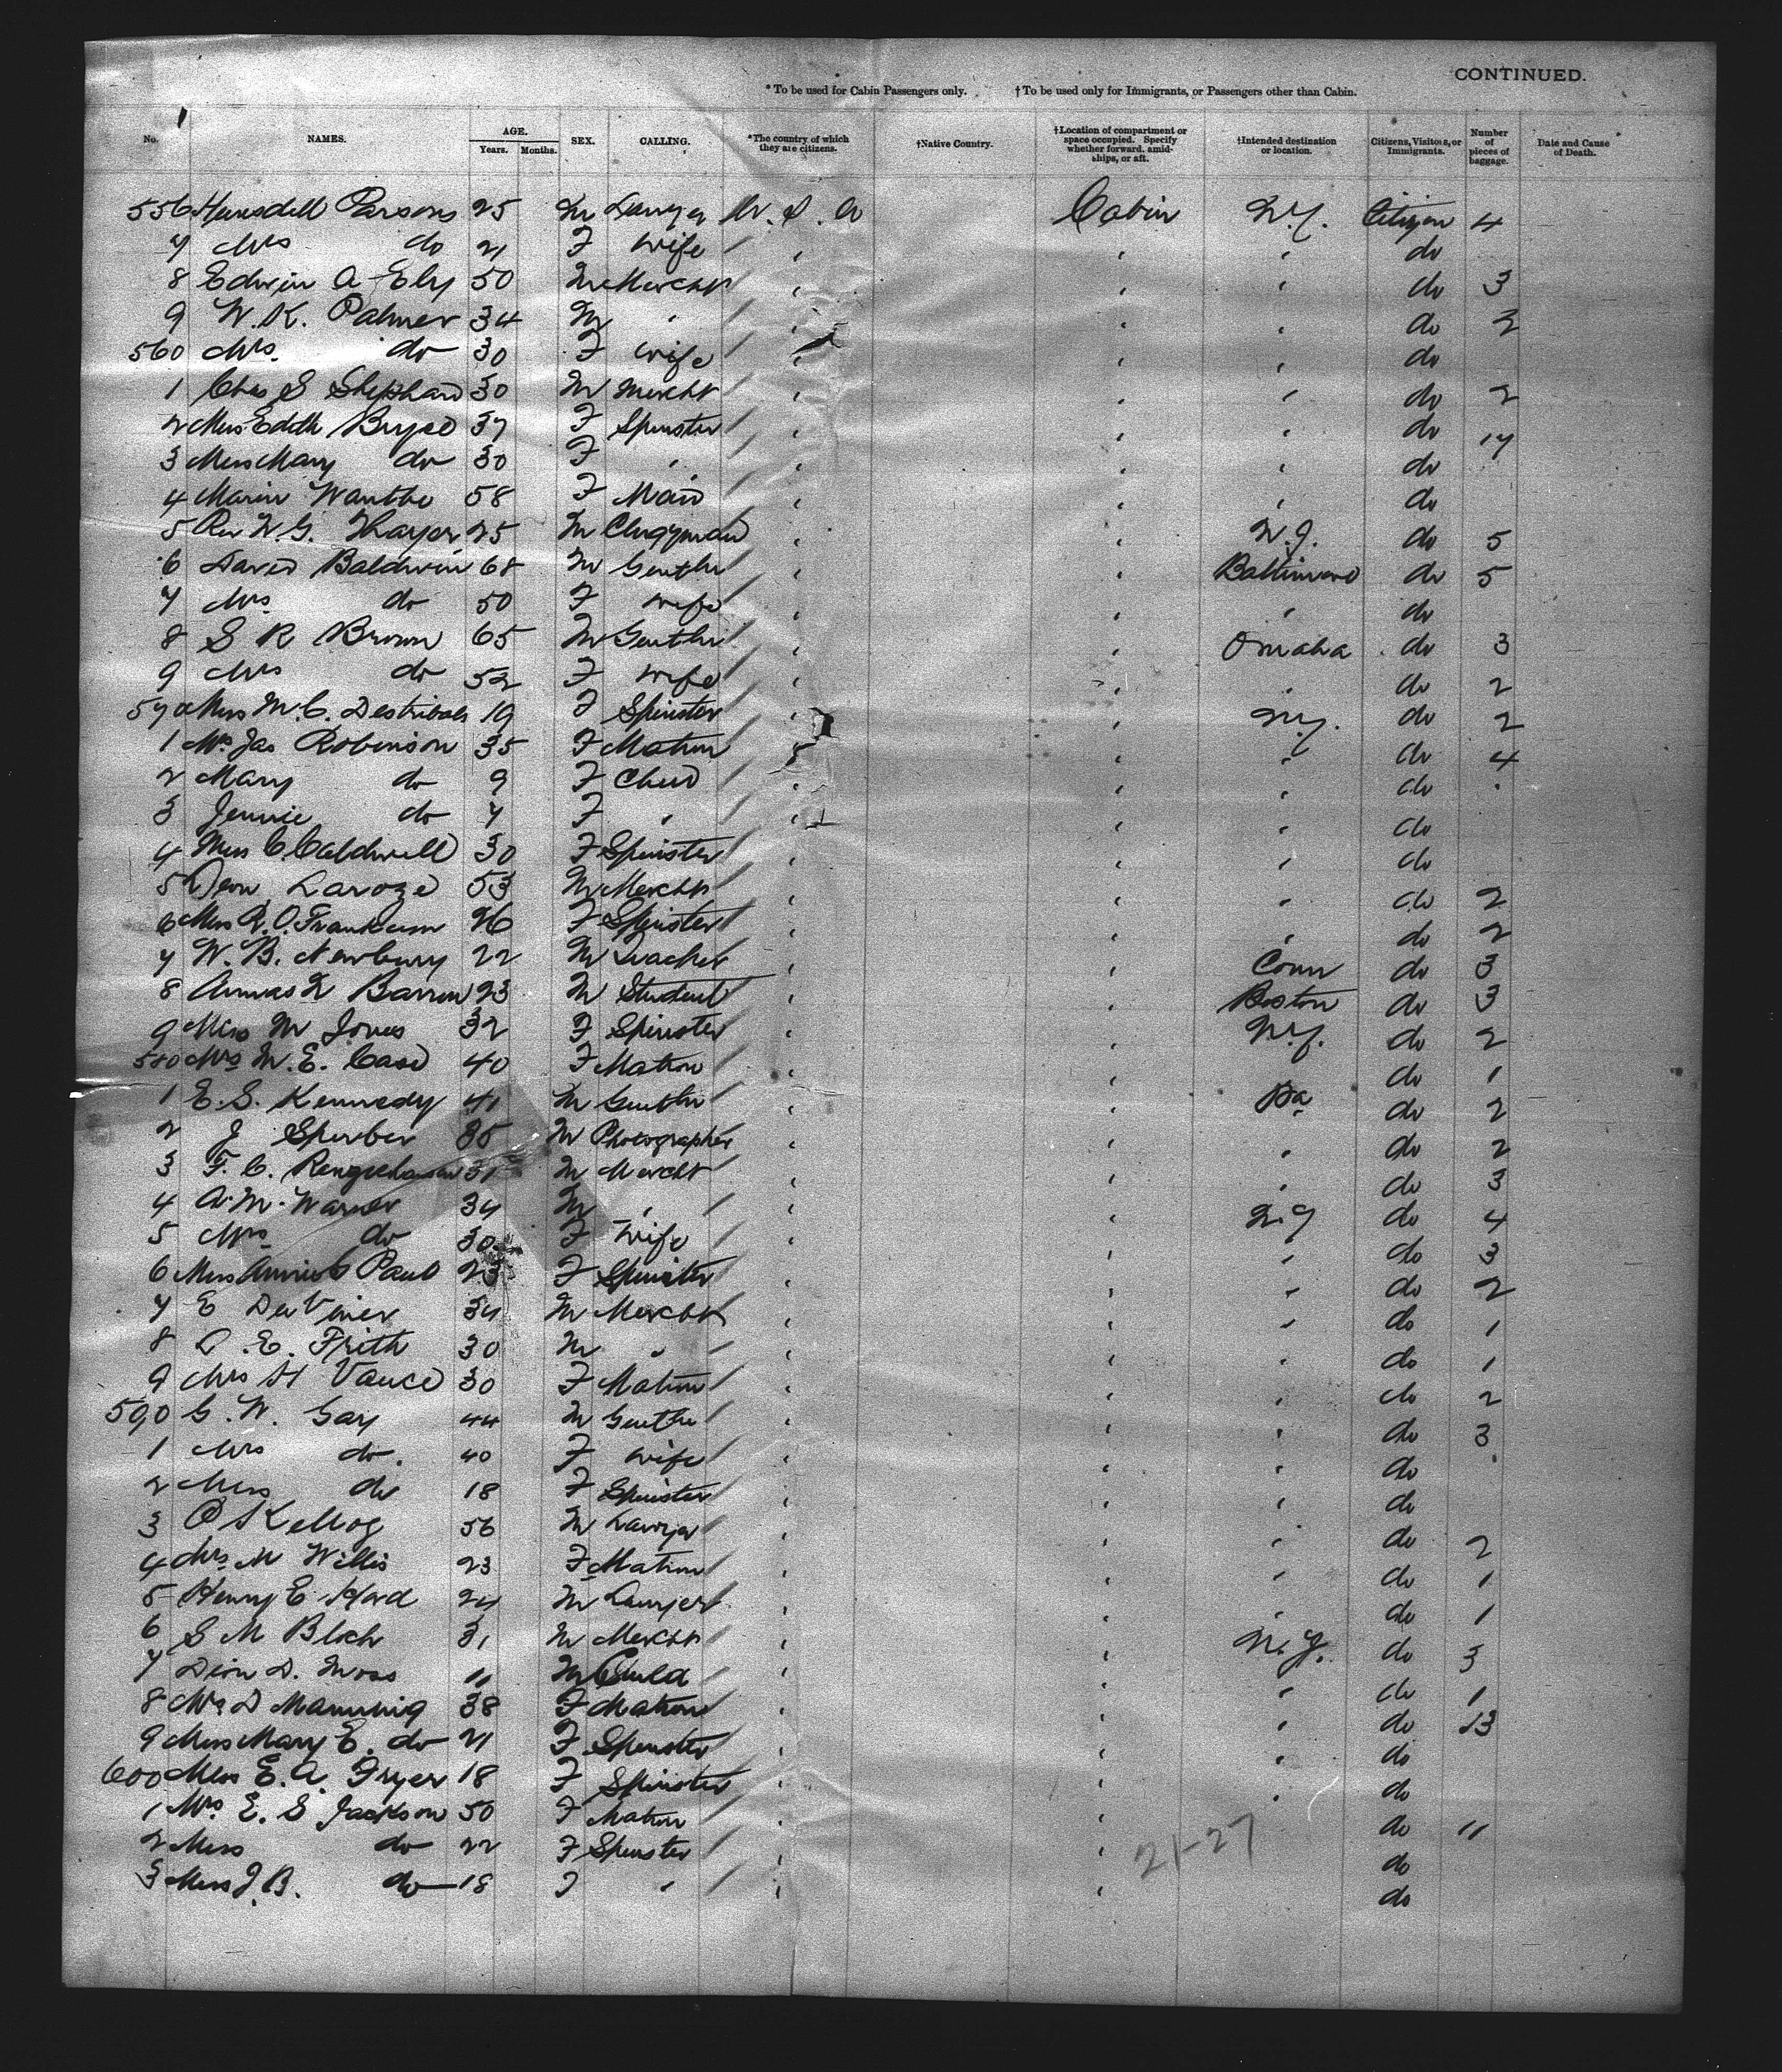 CONTINUED.
* To be used for Cabin Passengers only. † To be used only for Immigrants, or Passengers other than Cabin.
No. NAMES. AGE. Years. Months. SEX. CALLING. *The country of which they are citizens. †Native Country. †Location of compartment or space occupied. Specify whether forward, amidships, or aft. †Intended destination or location. Citizens, Visitors, or Immigrants. Number of pieces of baggage. Date and Cause of Death.
556 Parsons 25 M Lawyer U. S. A Cabin N.Y. Citizen 4
7 Mrs do 21 F Wife / " " " do
8 Edwin A Ely 50 M Mercht / " " " do 3
9 W. K. Palmer 34 M " / " " " do 2
560 Mrs. do 30 F Wife / " " " do
1 Chas S Shephard 30 M Mercht / " " " do 2
2 Miss Edith Bryce 37 F Spinster / " " " do 17
3 Miss Mary do 30 F " / " " " do
4 Marie 58 F Maid / " " " do
5 Rev W. G. Thayer 25 M Clergyman / " " N.J. do 5
6 David Baldwin 68 M Gentln / " " Baltimore do 5
7 Mrs do 50 F Wife / " " " do
8 S R Brown 65 M Gentln / " " Omaha do 3
9 Mrs do 52 F Wife / " " " do 2
570 Miss M. C. 19 F Spinster / " " N.Y. do 2
1 Mrs Jas Robinson 35 F Matron / " " " do 4
2 Mary do 9 F Child / " " " do
3 Jennie do 7 F " / " " " do
4 Miss C Caldwell 30 F Spinster / " " " do
5 Laroze 53 M Mercht / " " " do 2
6 Miss 26 F Spinster / " " " do 2
7 W. B. Newbury 22 M Teacher / " " Conn do 3
8 Barron 23 M Student / " " Boston do 3
9 Miss M Jones 32 F Spinster / " " N.Y. do 2
580 Mrs M. E. Case 40 F Matron / " " do 1
1 E. S. Kennedy 41 M Gentln / " " Pa do 2
2 J Sperber 35 M Photographer / " " " do 2
3 F. C. 31 M Mercht / " " " do 3
4 A. M. Warner 34 M " / " " N.Y do 4
5 Mrs do 30 F Wife / " " " do 3
6 Miss Annie C Paul 23 F Spinster / " " " do 2
7 E 34 M Mercht / " " " do 1
8 Frith 30 M " / " " " do 1
9 Mrs H Vance 30 F Matron / " " " do 2
590 G. W. Gay 44 M Gentln / " " " do 3
1 Mrs do. 40 F Wife / " " " do
2 Miss do 18 F Spinster / " " " do
3 P Kellog 56 M Lawyer / " " " do 2
4 Mrs M Willis 23 F Matron / " " " do 1
5 Henry E 24 M Lawyer / " " " do 1
6 S M Bloch 31 M Mercht / " " N.Y. do 3
7 D. Moss 11 M Child / " " " do 1
8 Mrs D Manning 38 F Matron / " " " do 13
9 Miss Mary E. do 21 F Spinster / " " " do
600 Miss E. A. Fryer 18 F Spinster / " " " do
1 Mrs. E. S Jackson 50 F Matron / " " do 11
2 Miss do 22 F Spinster / " " do
3 Miss J. B. do 18 F " / " " do
21-27